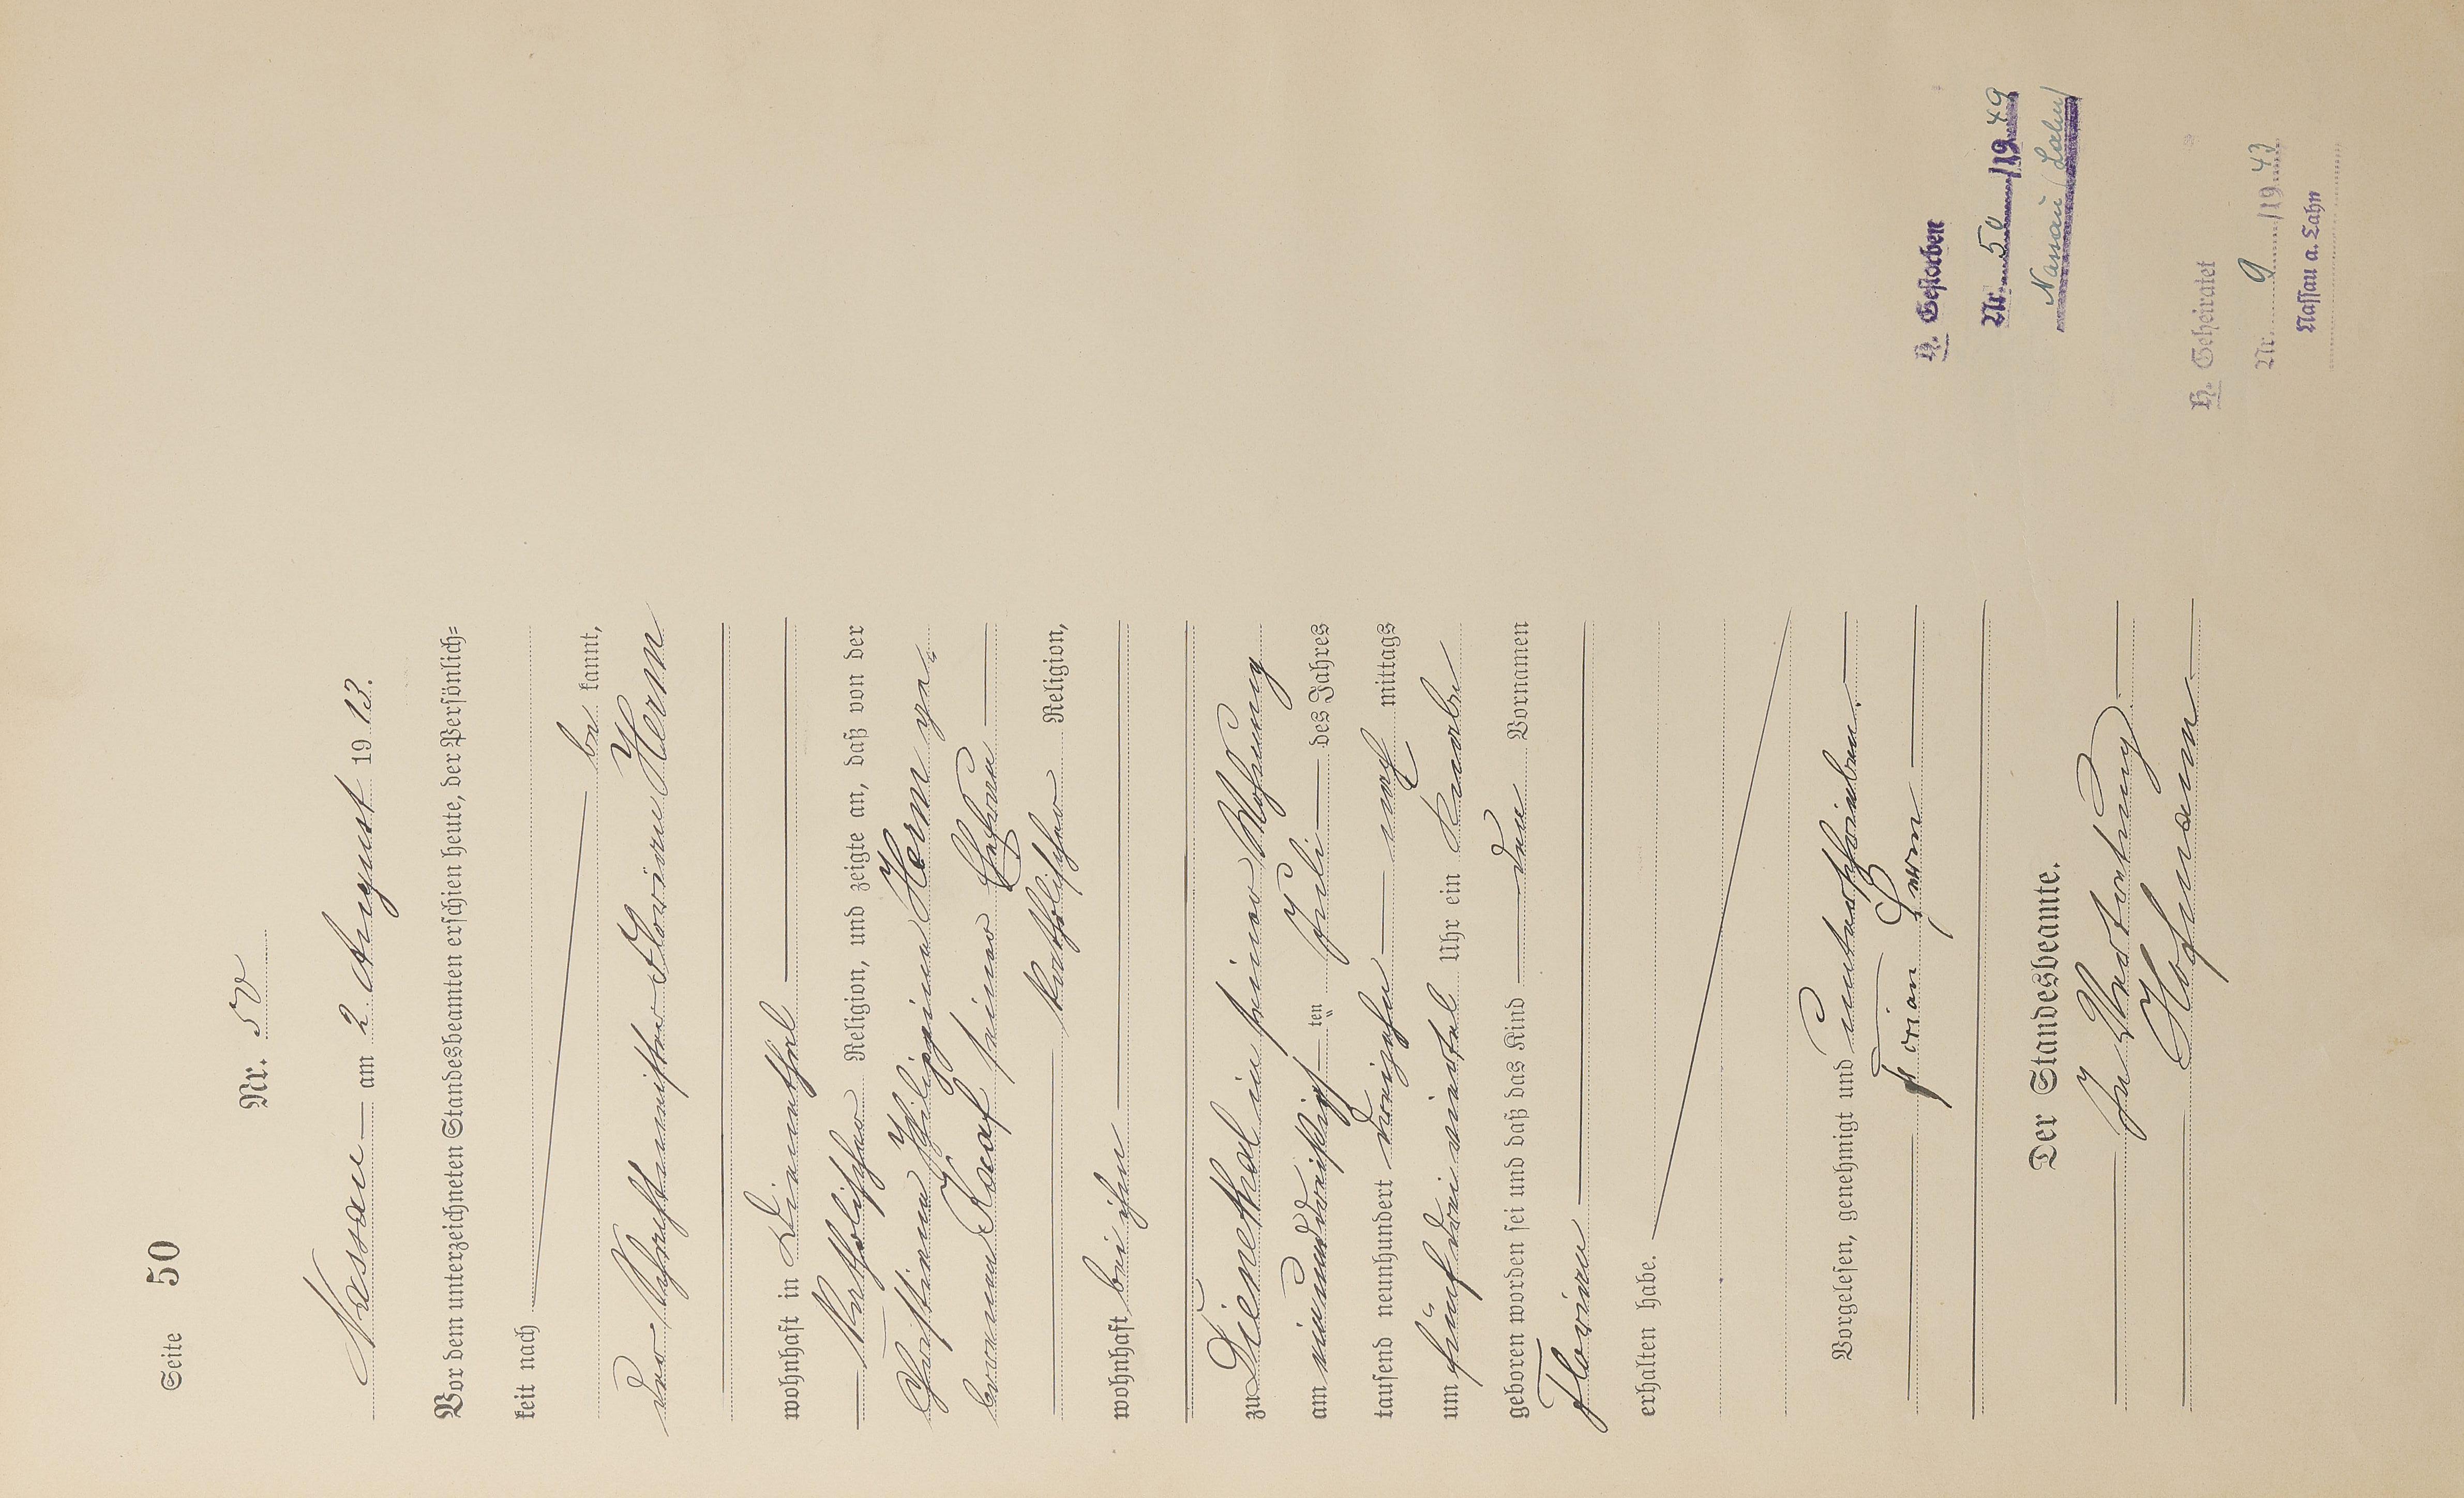 Seite 50
Nr. 50
Nassau am 2. August 1913.
Vor dem unterzeichneten Standesbeamten erschien heute, der Persönlich-
keit nach
be kannt,
der Schreinermeister Florian Herm
wohnhaft in Dienethal
katholischer Religion, und zeigte an, daß von der
Christiane Philippine Herm ge-
borenen Graf seiner Ehefrau
katholischer Religion,
wohnhaft bei ihm
zu Dienethal in seiner Wohnung
am einunddreißigsten ten Juli des Jahres
tausend neunhundert dreizehn nach mittags
um fünf dreiviertel Uhr ein Knabe
geboren worden sei und daß das Kind den Vornamen
Florian
erhalten habe.
Vorgelesen, genehmigt und unterschrieben.
Florian Herm
Der Standesbeamte.
In Vertretung
Hofmann
H. Gestorben
Nr. 50 /19 49
Nassau (Lahn)
H. Geheiratet
Nr. 9 /19 43
Nassau a. Lahn